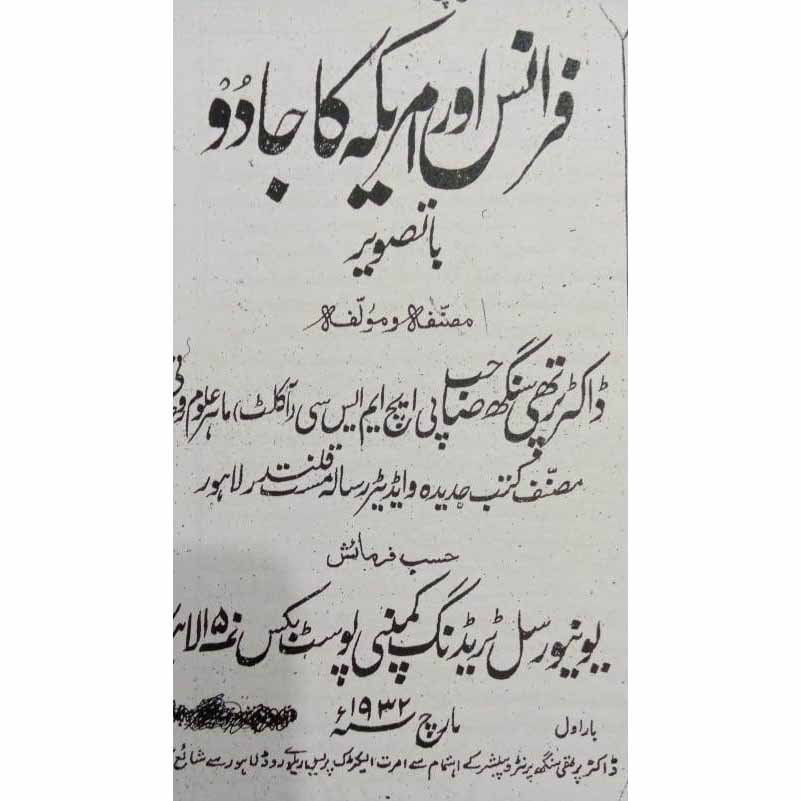 فرانس اور امریکہ کا جادُو
باتصویر
مصنّفہ و مولّفہ
ڈاکٹر پرتھی سنگھ صاحب پی ایچ ایم ایس سی (آکلٹ) ماہر علوم
مصنّف کتب جدیدہ و ایڈیٹر رسالہ مست قلندر لاہور
حسب فرمائش
یونیورسل ٹریڈنگ کمپنی پوسٹ بکس نمبر
بار اول مارچ ۱۹۳۲ء
ڈاکٹر پرتھی سنگھ پرنٹر و پبلشر کے اہتمام سے امرت الیکٹرک پریس ریلوے روڈ لاہور سے شائع